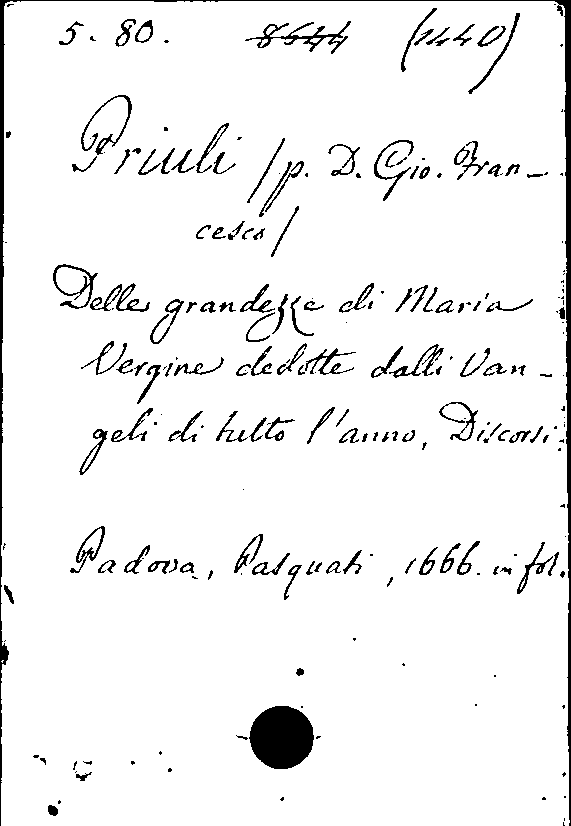 5. 80. 8644 (1440)
Priuli /p. D. Gio. Fran-
cesco/
Delle grandezze di Maria
Vergine dedotte dalli Van-
geli di tutto l'anno, Discorsi.
Padova, Pasquati, 1666. in fol.